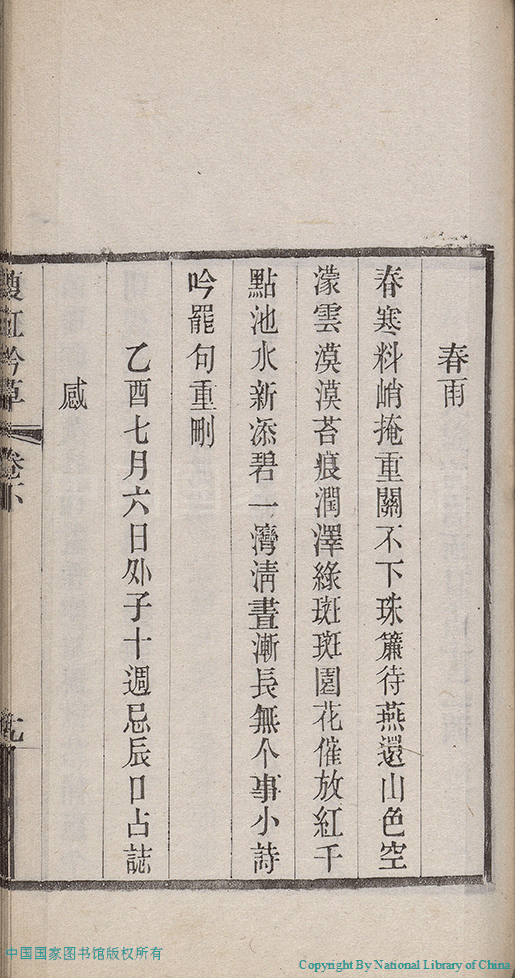 春雨
春寒料峭掩重關不下珠簾待燕還山色空
濛雲漠漠苔痕潤澤綠斑斑園花催放紅千
點池水新添碧一灣清晝漸長無个事小詩
吟罷句重刪
乙酉七月六日外子十週忌辰口占誌
感
吟草 卷下
中国国家图书馆版权所有
Copyright By National Library of China